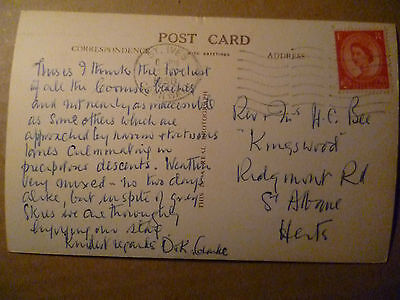 POST CARD
CORRESPONDENCE
ADDRESS
ST. IVES
This is I think the loveliest
of all the Cornish beaches
and not nearly as inaccessible
as some others which are
approached by narrow & tortuous
lanes culminating in
precipitous descents. Weather
very mixed – no two days
alike, but in spite of grey
skies we are thoroughly
enjoying our stay.
Kindest regards D & K.
THIS IS A REAL PHOTOGRAPH
Rev & Mrs H. C. Bee
"Kingswood"
Ridgmont Rd
St Albans
Herts